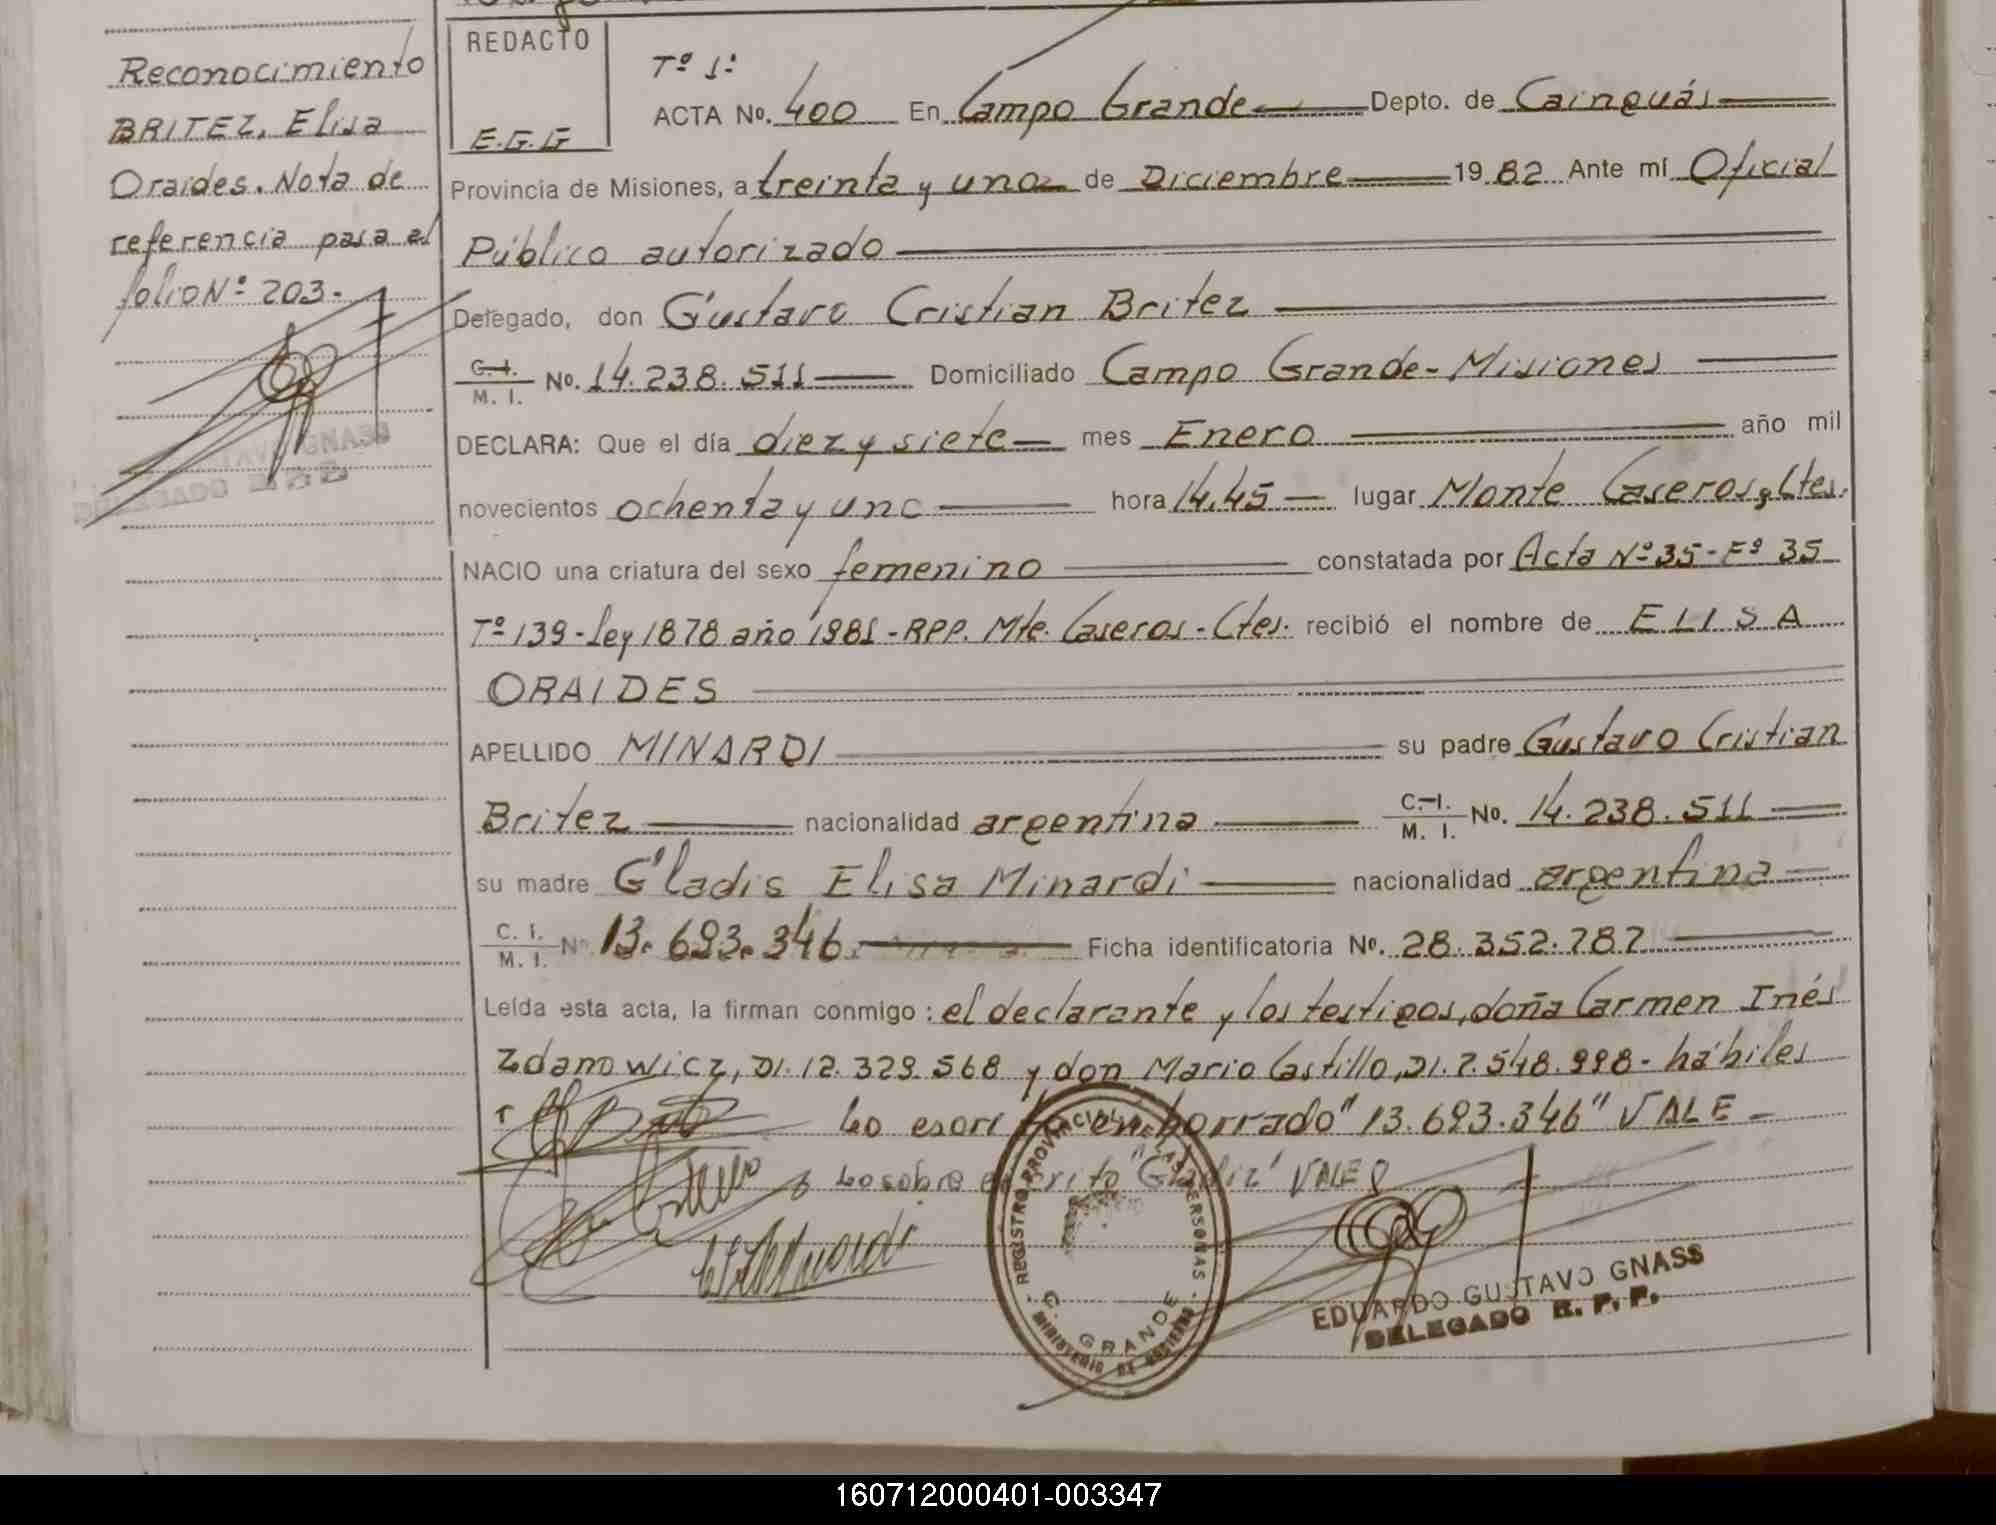 Reconocimiento
BRITEZ, Elisa
Oraides. Nota de
referencia para el
folio Nº 203-
REDACTO
E.G.G
Tº 1º
ACTA No. 400 En Campo Grande Depto. de Cainguás
Provincia de Misiones, a treinta y uno de Diciembre 19 82 Ante mí Oficial
Público autorizado
Delegado, don Gustavo Cristian Britez
C.I. / M. I. No. 14.238.511 Domiciliado Campo Grande-Misiones
DECLARA: Que el día diez y siete mes Enero año mil
novecientos ochenta y uno hora 14,45 lugar Monte Caseros, Ctes.
NACIO una criatura del sexo femenino constatada por Acta Nº 35-Fº 35
Tº 139-Ley 1878 año 1981-RPP. Mte. Caseros-Ctes. recibió el nombre de ELISA
ORAIDES
APELLIDO MINARDI su padre Gustavo Cristian
Britez nacionalidad argentina C.I. / M. I. No. 14.238.511
su madre Gladis Elisa Minardi nacionalidad argentina
C. I. / M. I. No. 13.693.346. Ficha identificatoria No. 28.352.787
Leída esta acta, la firman conmigo: el declarante y los testigos, doña Carmen Inés
Zdanowicz, DI. 12.329.568 y don Mario Castillo, DI. 7.548.998- hábiles
Lo escrito en borrado "13.693.346" VALE-
Lo sobre escrito VALE
REGISTRO PROVINCIAL DE LAS PERSONAS
C. GRANDE
MINISTERIO DE GOBIERNO
EDUARDO GUSTAVO GNASS
DELEGADO R. P. P.
160712000401-003347